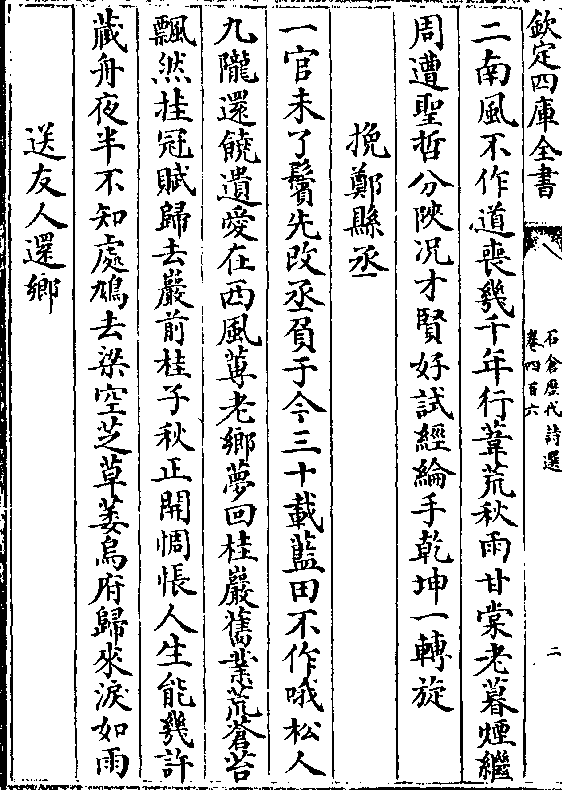 欽定四庫全書
石倉歷代詩選
卷四百六
二
二南風不作道喪幾千年行葦荒秋雨甘棠老暮煙繼
周遭聖哲分陜况才賢好試經綸手乾坤一轉旋
挽鄭縣丞
一官未了鬢先改丞負于今三十載藍田不作哦松人
九隴還饒遺愛在西風蓴老鄉夢回桂巖舊業荒蒼苔
飄然挂冠賦歸去巖前桂子秋正開惆悵人生能幾許
藏舟夜半不知處鳩去梁空芝草萎烏府歸來淚如雨
送友人還鄉